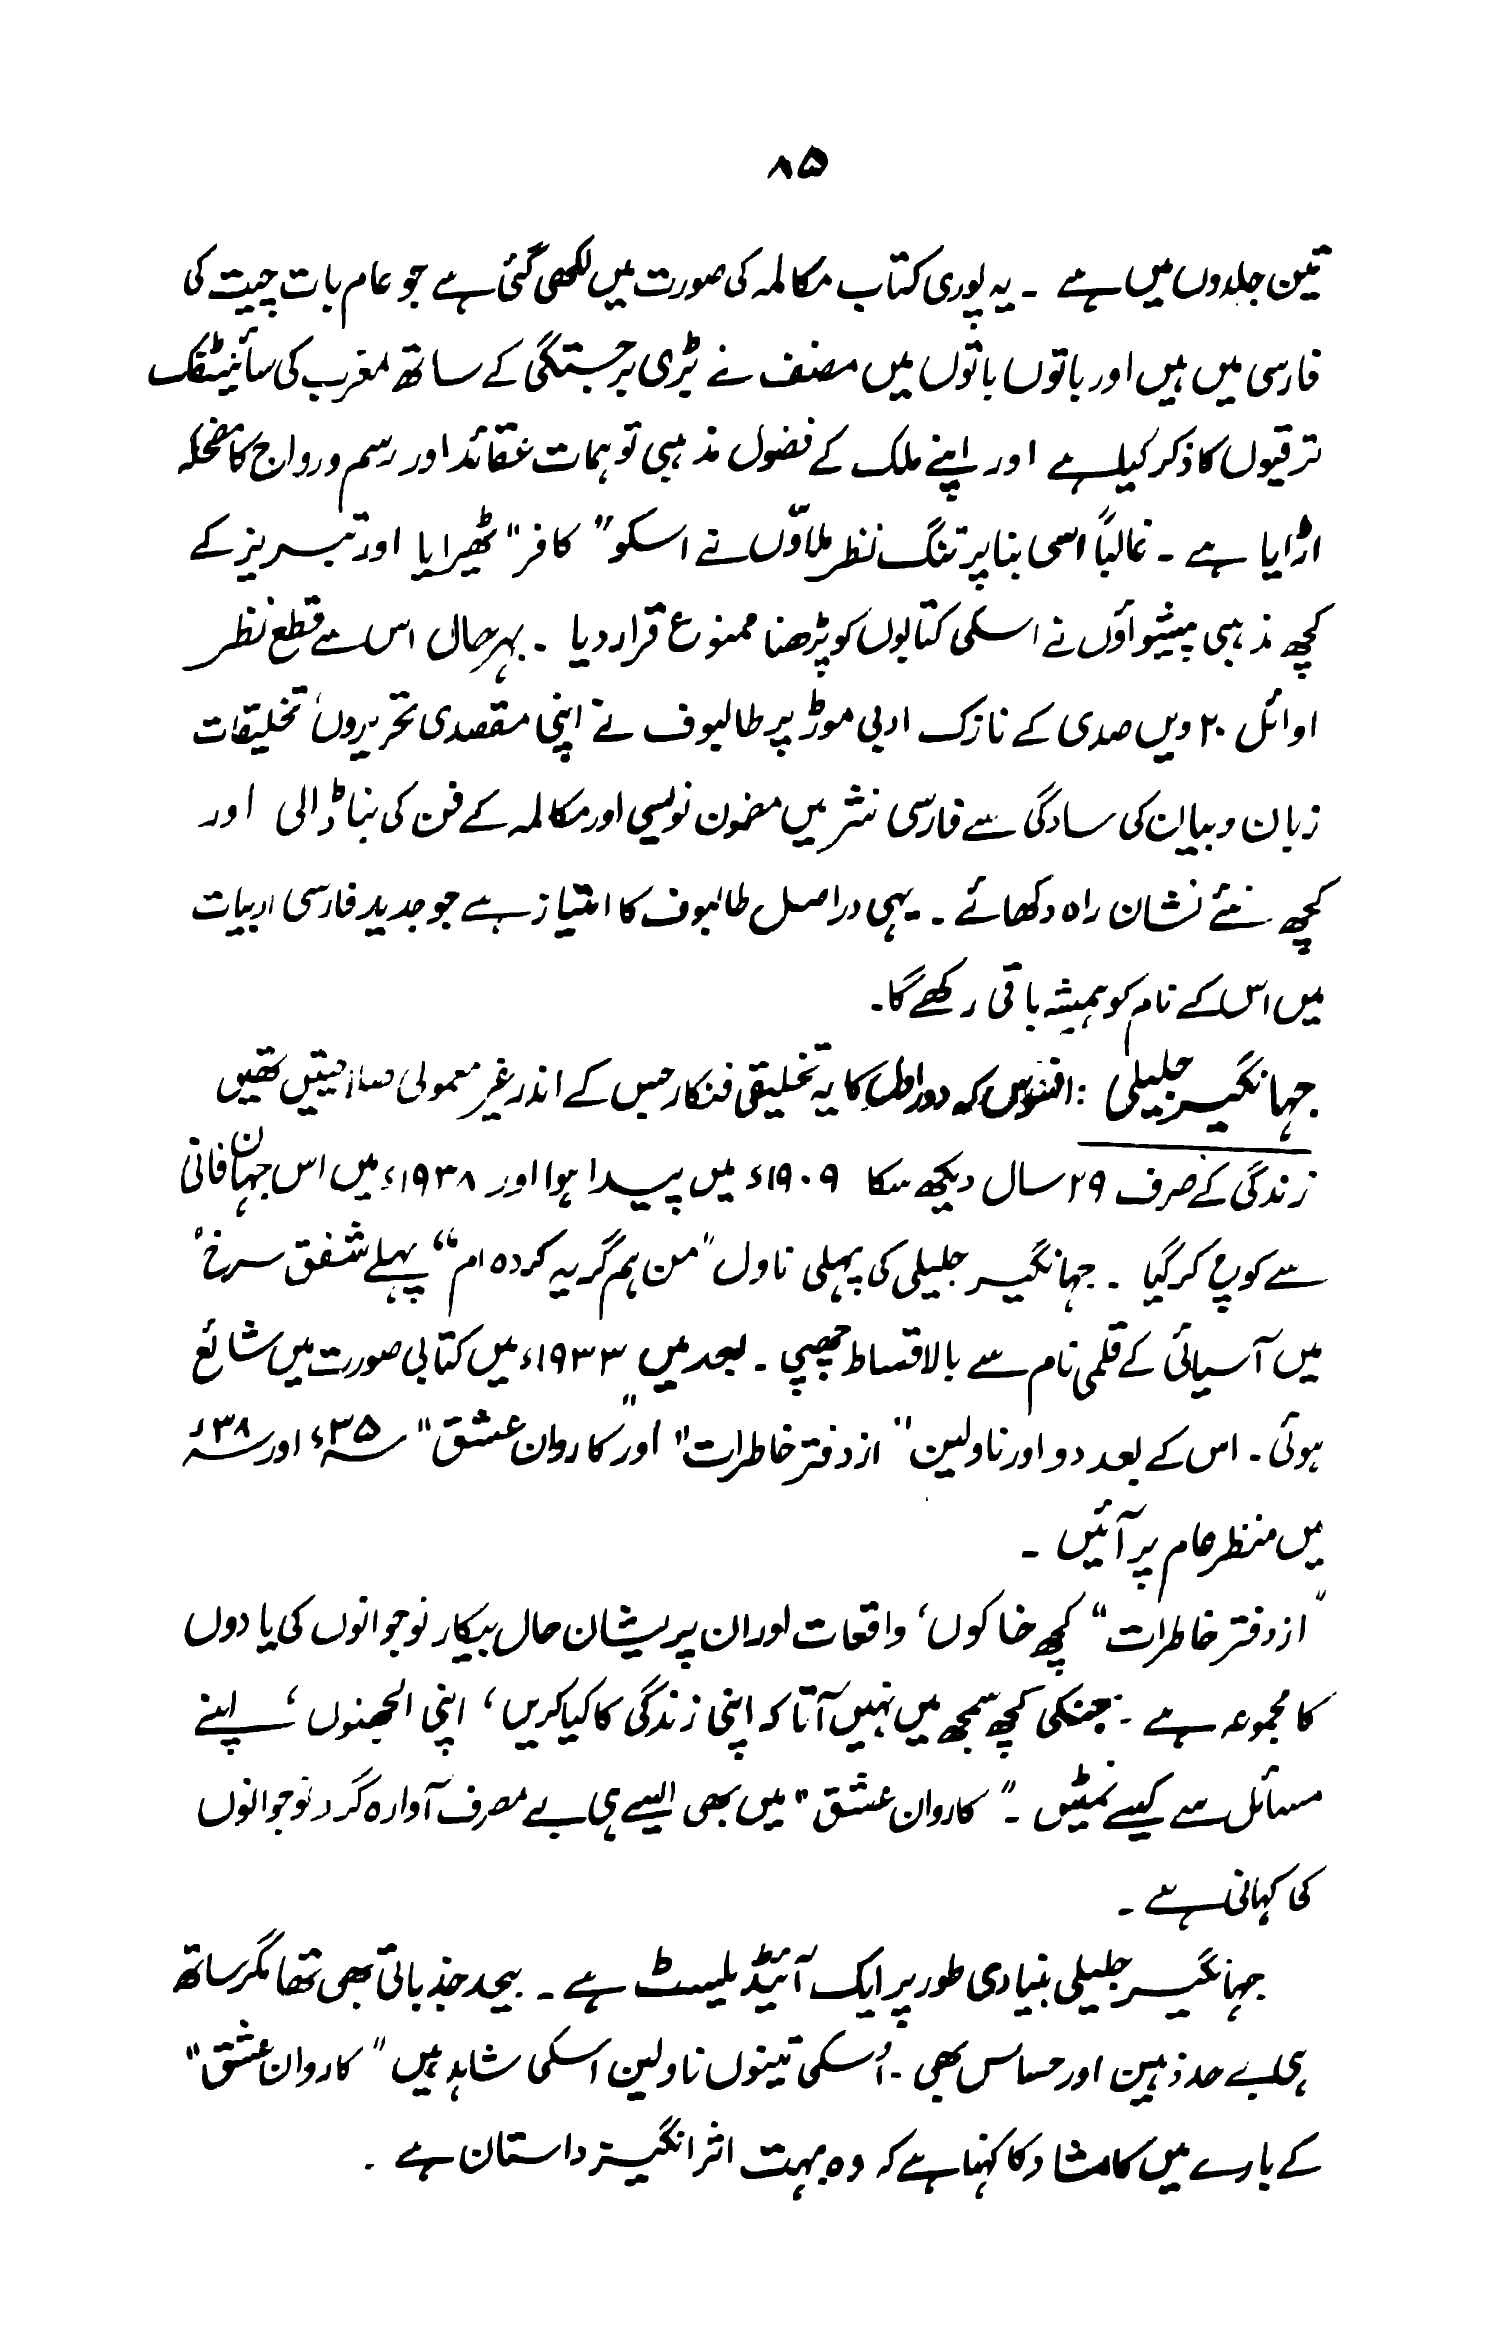 ۸۵
تین جلدوں میں ہے ۔ یہ پوری کتاب مکالمہ کی صورت میں لکھی گئی ہے جو عام بات چیت کی
فارسی میں ہیں اور باتوں باتوں میں مصنف نے بڑی برجستگی کے ساتھ مغرب کی سائنیٹفک
ترقیوں کا ذکر کیا ہے اور اپنے ملک کے فضول مذہبی توہمات عقائد اور رسم و رواج کا مضحکہ
اڑایا ہے ۔ غالباً اسی بنا پر تنگ نظر ملاؤں نے اسکو "کافر" ٹھیرایا اور تبریز کے
کچھ مذہبی پیشواؤں نے اسکی کتابوں کو پڑھنا ممنوع قرار دیا ۔ بہرحال اس سے قطع نظر
اوائل ۲۰ ویں صدی کے نازک ادبی موڑ پر طالبوف نے اپنی مقصدی تحریروں، تخلیقات
زبان و بیان کی سادگی سے فارسی نثر میں مضمون نویسی اور مکالمہ کے فن کی بنا ڈالی اور
کچھ نئے نشان راہ دکھائے ۔ یہی دراصل طالبوف کا امتیاز ہے جو جدید فارسی ادبیات
میں اس کے نام کو ہمیشہ باقی رکھے گا۔
جہانگیر جلیلی : افسوس کہ دور اول کا یہ تخلیقی فنکار جس کے اندر غیر معمولی صلاحیتیں تھیں
زندگی کے صرف ۲۹ سال دیکھ سکا ۱۹۰۹ء میں پیدا ہوا اور ۱۹۳۸ء میں اس جہان فانی
سے کوچ کر گیا ۔ جہانگیر جلیلی کی پہلی ناول "من ہم گریہ کردہ ام" پہلے شفق سرخ"
میں آسیائی کے قلمی نام سے بالاقساط چھپی ۔ بعد میں ۱۹۳۳ء میں کتابی صورت میں شائع
ہوئی ۔ اس کے بعد دو اور ناولیں "از دفتر خاطرات" اور "کاروان عشق" ۳۵ء اور ۳۸ء
میں منظر عام پر آئیں ۔
"از دفتر خاطرات" کچھ خاکوں، واقعات اور ان پریشان حال بیکار نوجوانوں کی یادوں
کا مجموعہ ہے ۔ جنکی کچھ سمجھ میں نہیں آتا کہ اپنی زندگی کا کیا کریں، اپنی الجھنوں، اپنے
مسائل سے کیسے نمٹیں ۔ "کاروان عشق" میں بھی ایسے ہی بے مصرف آوارہ گرد نوجوانوں
کی کہانی ہے ۔
جہانگیر جلیلی بنیادی طور پر ایک آئیڈیلیسٹ ہے ۔ بیحد جذباتی بھی تھا مگر ساتھ
ہی بے حد ذہین اور حساس بھی ۔ اُسکی تینوں ناولیں اسکی شاہد ہیں "کاروان عشق"
کے بارے میں کامشاد کا کہنا ہے کہ وہ بہت اثر انگیز داستان ہے ۔